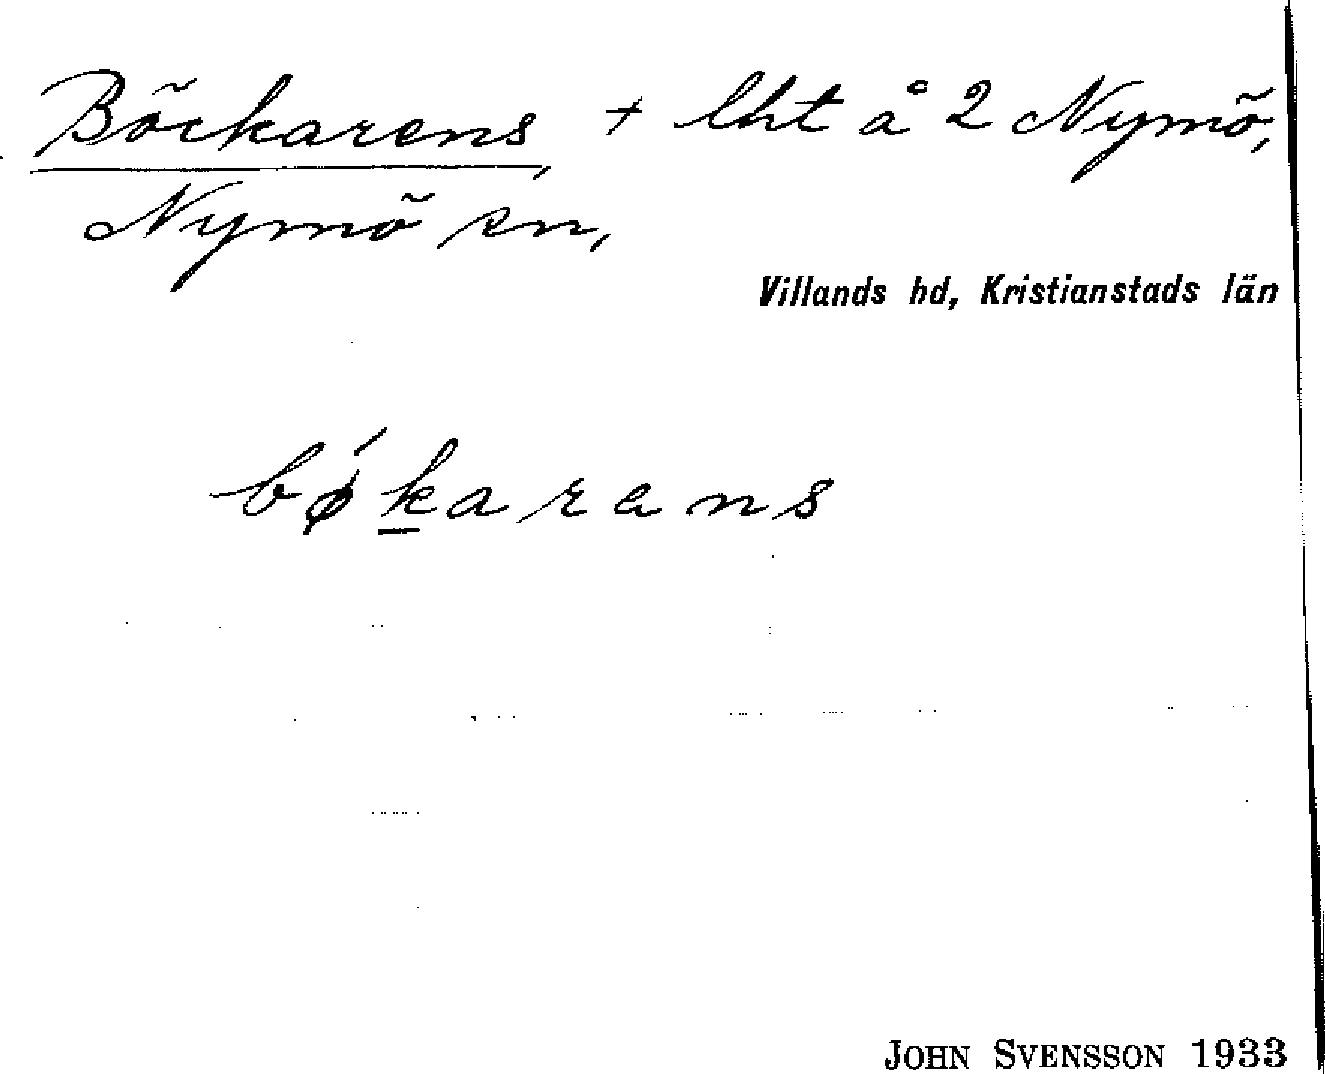 Böckarens, + lht å 2 Nymö,
Nymö sn,
Villands hd, Kristianstads län
bǿkarans
JOHN SVENSSON 1933